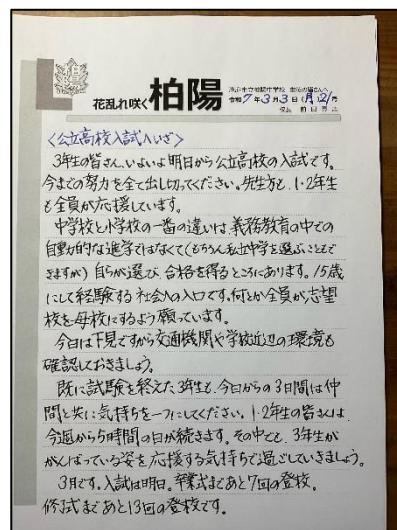 花乱れ咲く 柏陽
令和7年3月3日(月)121号
<公立高校入試へいざ>
3年生の皆さん、いよいよ明日から公立高校の入試です。
今までの努力を全て出し切ってください。先生方も、1・2年生
も全員が応援しています。
中学校と小学校の一番の違いは、義務教育の中での
自動的な進学ではなくて(もちろん私立中学を選ぶことも
できますが)自らが選び、合格を得るところにあります。15歳
にして経験する社会への入口です。何とか全員が志望
校を母校にするよう願っています。
今日は下見ですから交通機関や学校近辺の環境も
確認しておきましょう。
既に試験を終えた3年生も、今日からの3日間は仲
間と共に気持ちを一つにしてください。1・2年生の皆さんは、
今週から5時間の日が続きます。その中でも、3年生が
がんばっている姿を応援する気持ちで過ごしていきましょう。
3月です。入試は明日。卒業式まであと7回の登校。
修了式まであと13回の登校です。